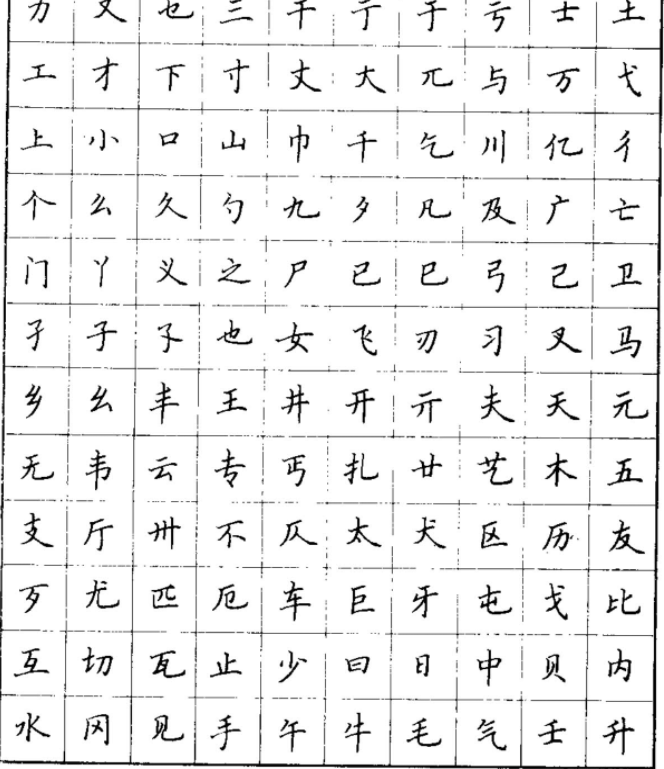 力 又 乜 三 干 亍 于 亏 士 土
工 才 下 寸 丈 大 兀 与 万 弋
上 小 口 山 巾 千 乞 川 亿 彳
个 么 久 勺 丸 夕 凡 及 广 亡
门 丫 义 之 尸 已 巳 弓 己 卫
孑 子 孓 也 女 飞 刃 习 叉 马
乡 幺 丰 王 井 开 亓 夫 天 元
无 韦 云 专 丐 扎 廿 艺 木 五
支 厅 卅 不 仄 太 犬 区 历 友
歹 尤 匹 厄 车 巨 牙 屯 戈 比
互 切 瓦 止 少 曰 日 中 贝 内
水 冈 见 手 午 牛 毛 气 壬 升